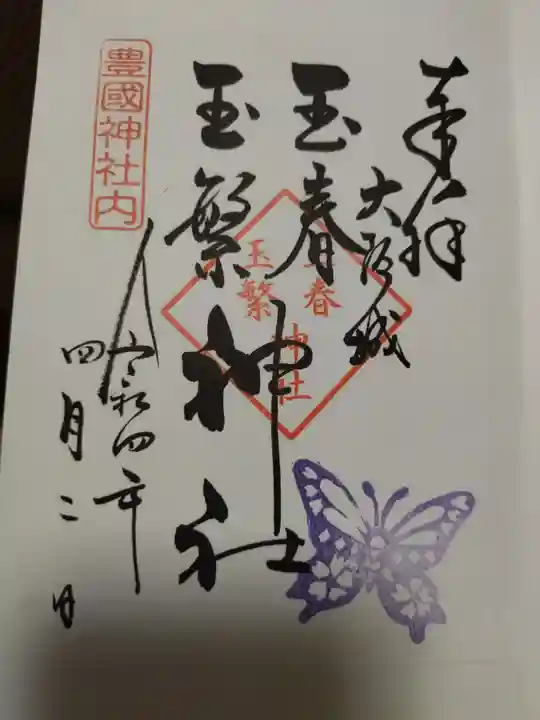 奉拝
大阪城
玉春
玉繁神社
玉春
玉繁
神社
豊國神社内
令和四年
四月二日